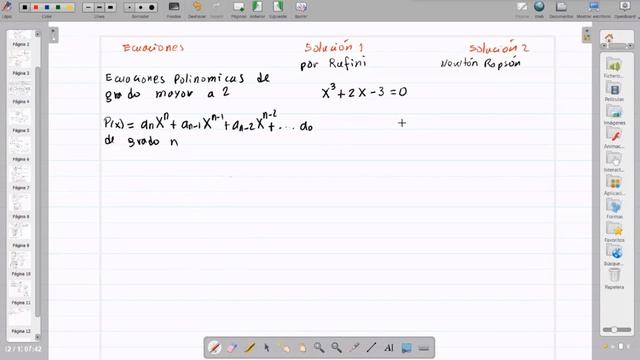 Lápiz
Color
Línea
Página
Deshacer
Fondos
Anterior
Siguiente
Borrar página
Pizarra
Web
Documentos
Mostrar escritorio
OpenBoard
Página 2
Página 3
Página 4
Página 5
Página 6
Página 7
Página 8
Página 9
Página 10
Página 11
Página 12
Ecuaciones
Solución 1
Solución 2
por Rufini
Newtón Rapsón
Ecuaciones Polinomicas de
grado mayor a 2
x³ + 2x - 3 = 0
P(x) = aₙxⁿ + aₙ₋₁xⁿ⁻¹ + aₙ₋₂xⁿ⁻² + ... a₀
de grado n
Imágenes
Sonidos
Películas
Animacio
Interactivi
Aplicacio
Formas
Favoritos
Búsqueda
Papelera
(2 / 1) 07:42